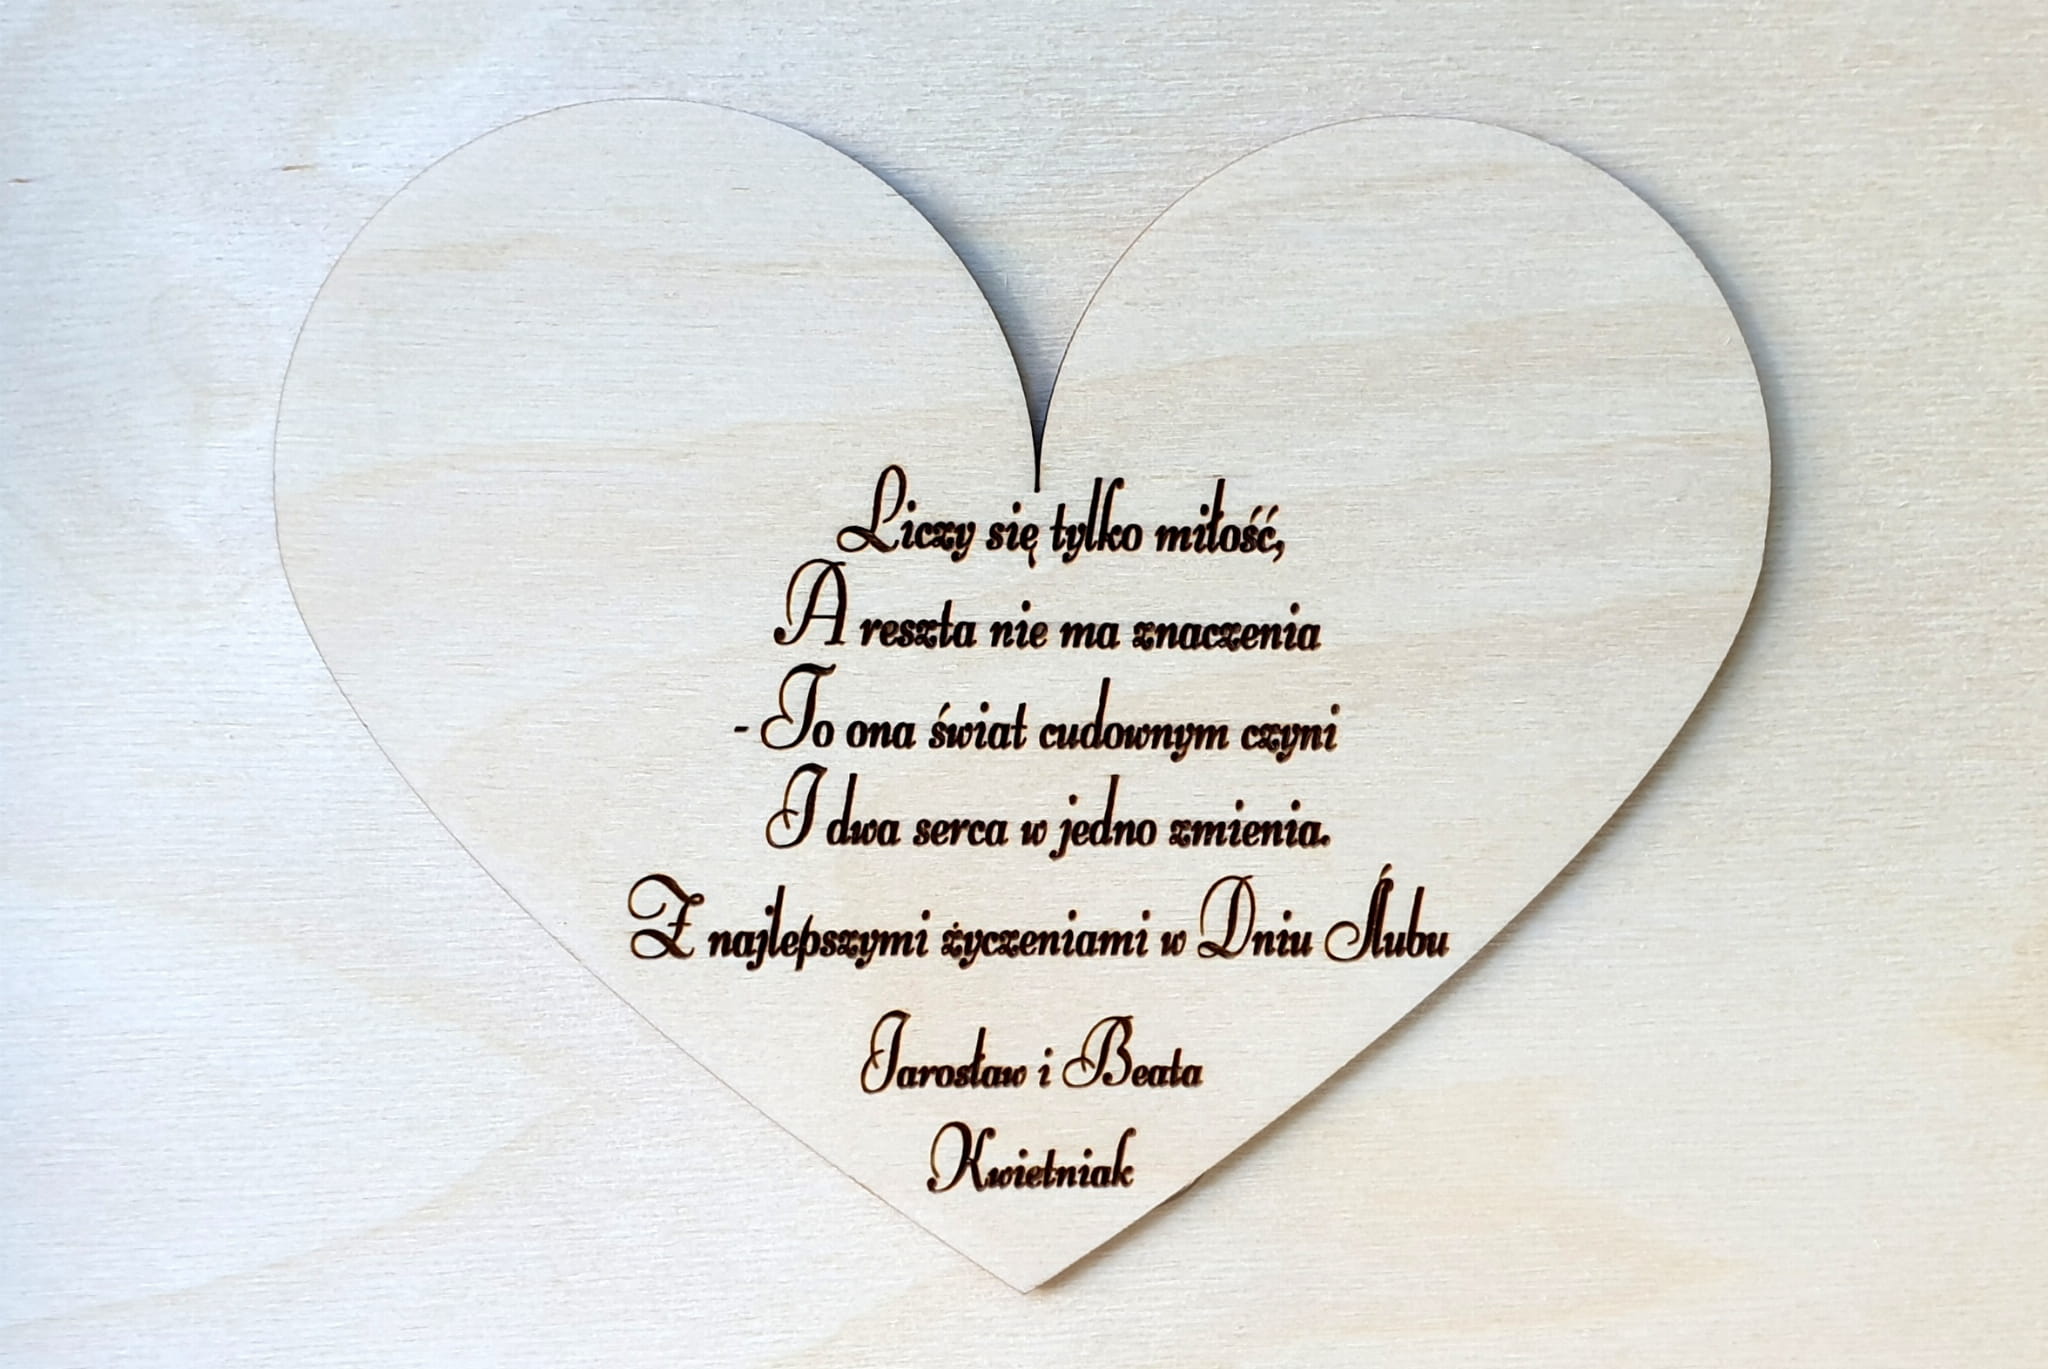 Liczy się tylko miłość,
A reszta nie ma znaczenia
- To ona świat cudownym czyni
I dwa serca w jedno zmienia.
Z najlepszymi życzeniami w Dniu Ślubu
Jarosław i Beata
Kwietniak